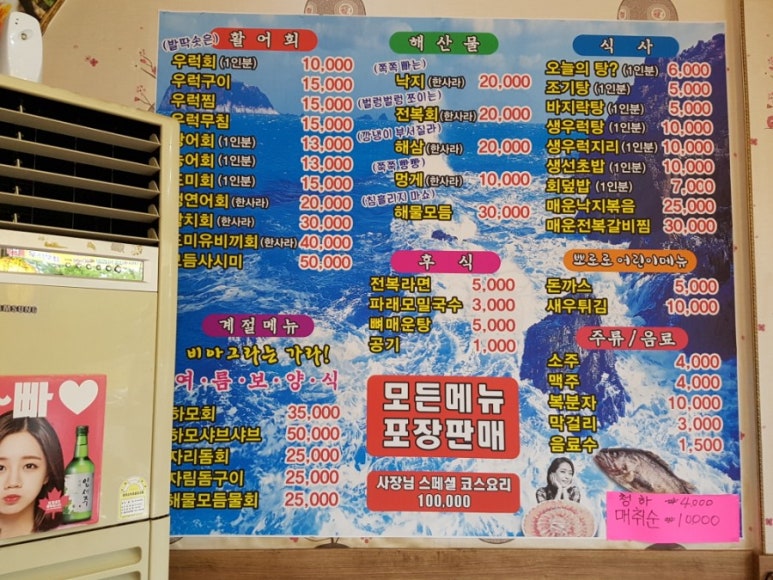 (발딱솟은) 활어회
우럭회(1인분) 10,000
우럭구이 15,000
우럭찜 15,000
우럭무침 15,000
(1인분) 13,000
(1인분) 13,000
(1인분) 15,000
(한사라) 20,000
(한사라) 30,000
도미유비끼회(한사라) 40,000
모듬사시미 50,000
계절메뉴
비아그라는 가라!
여·름·보·양·식
하모회 35,000
하모샤브샤브 50,000
자리돔회 25,000
자림돔구이 25,000
해물모듬물회 25,000
해산물
(쪽쪽빠는)
낙지(한사라) 20,000
(벌렁벌렁 쪼이는)
전복회(한사라) 20,000
(깡냉이 부서질라)
해삼(한사라) 20,000
(쪽쪽빵빵)
멍게(한사라) 10,000
(침흘리지 마쇼)
해물모듬 30,000
후식
전복라면 5,000
파래모밀국수 3,000
뼈매운탕 5,000
공기 1,000
모든메뉴
포장판매
사장님 스페셜 코스요리
100,000
식사
오늘의 탕?(1인분) 6,000
조기탕(1인분) 5,000
바지락탕(1인분) 5,000
생우럭탕(1인분) 10,000
생우럭지리(1인분) 10,000
생선초밥(1인분) 10,000
회덮밥(1인분) 7,000
매운낙지볶음 25,000
매운전복갈비찜 30,000
뽀로로 어린이메뉴
돈까스 5,000
새우튀김 10,000
주류/음료
소주 4,000
맥주 4,000
복분자 10,000
막걸리 3,000
음료수 1,500
청하 ₩4000
매취순 ₩10000
SAMSUNG
~빠♥